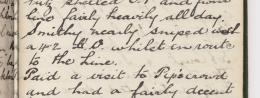 shelled
line fairly heavily all day.
Smithy nearly sniped with
a 4.2 G.O. whilst en route
to the Line.
Paid a visit to Pip's crowd
and had a fairly decent